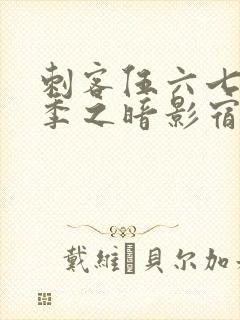 刺客伍六七
季之暗影宿
戴維 貝尔加